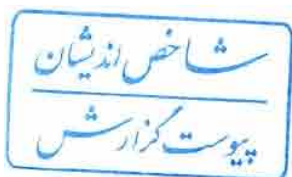 شاخص اندیشان
پیوست گزارش